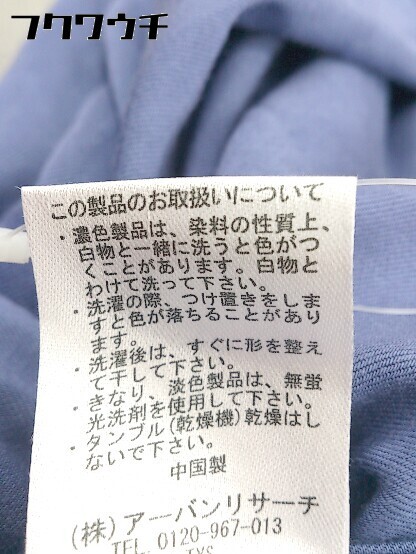 フクワウチ
この製品のお取扱いについて
・濃色製品は、染料の性質上、
白物と一緒に洗うと色がつ
くことがあります。白物と
わけて洗って下さい。
・洗濯の際、つけ置きをしま
すと色が落ちることがあり
ます。
・洗濯後は、すぐに形を整え
て干して下さい。
・きなり、淡色製品は、無蛍
光洗剤を使用して下さい。
・タンブル(乾燥機)乾燥はし
ないで下さい。
中国製
(株)アーバンリサーチ
TEL 0120-967-013
TYS